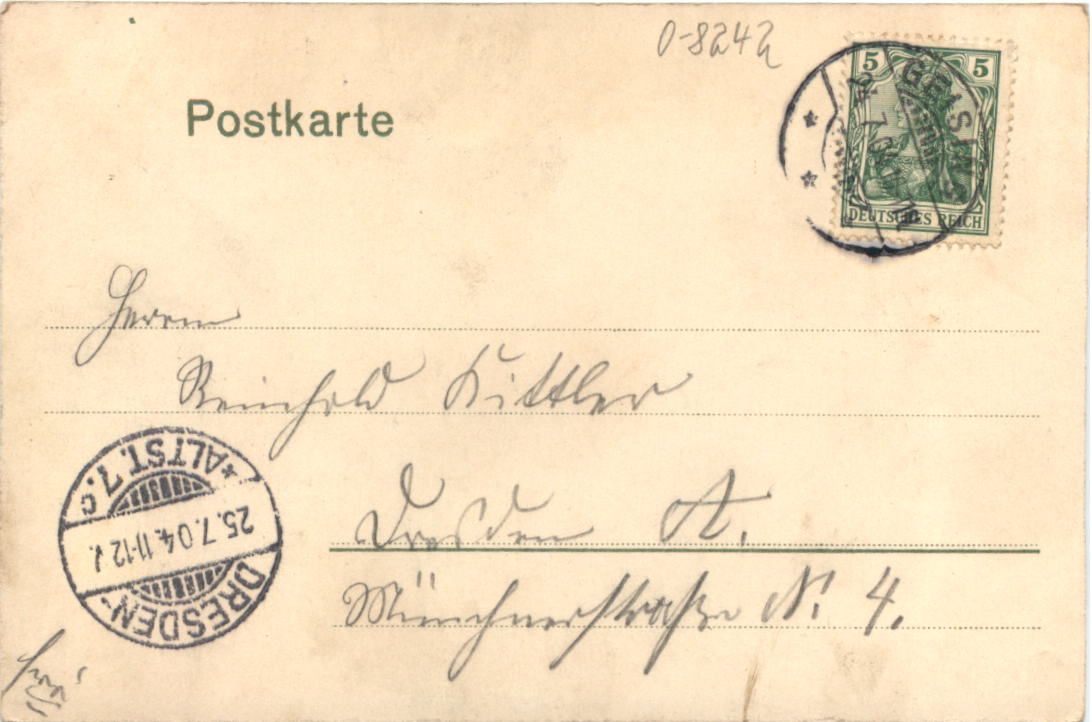 0-8242
Postkarte
5 5
GEISING
DEUTSCHES REICH
Herrn
Reinhold Kittler
Dresden A.
Münchnerstraße N. 4.
DRESDEN-
25.7.04. 11-12 V.
*ALTST. 7. c